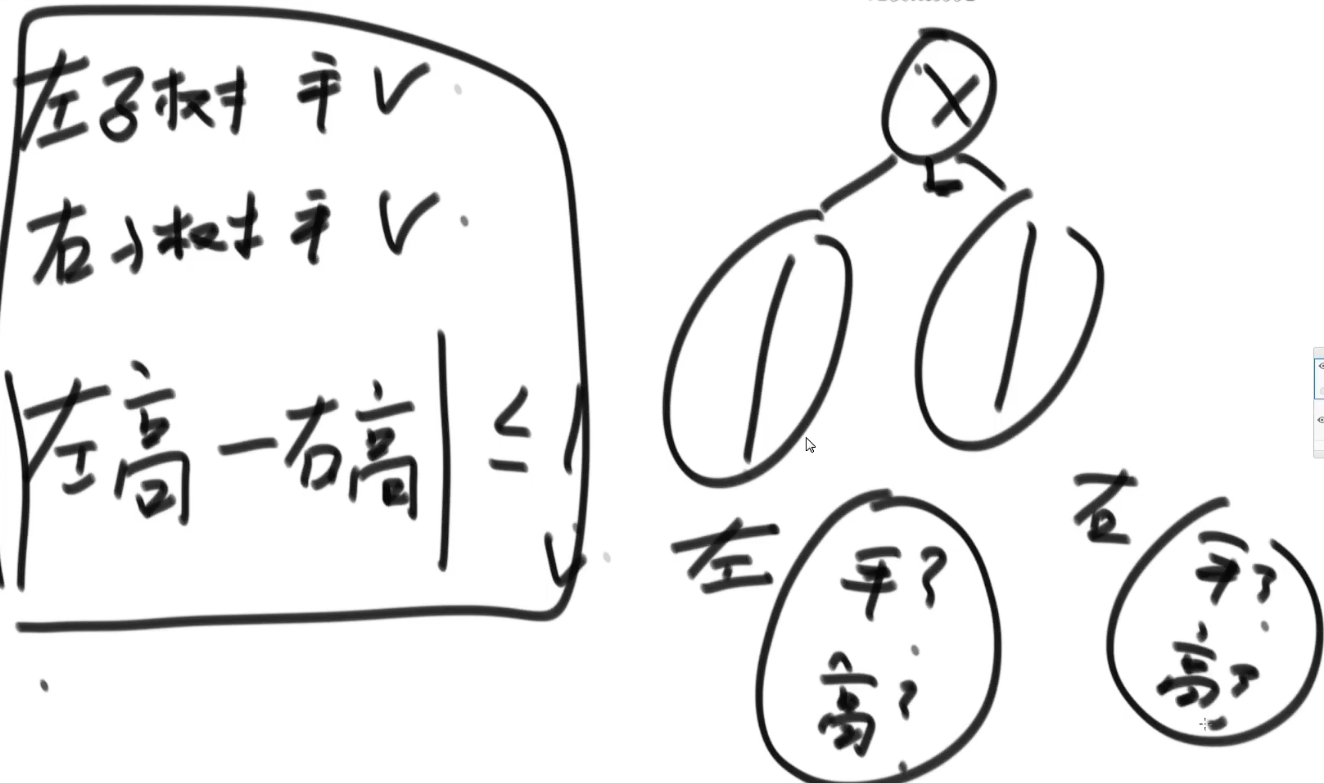 左子树 平 √
右子树 平 √
|左高 - 右高| ≤ 1 √
X
左
平?
高?
右
平?
高?